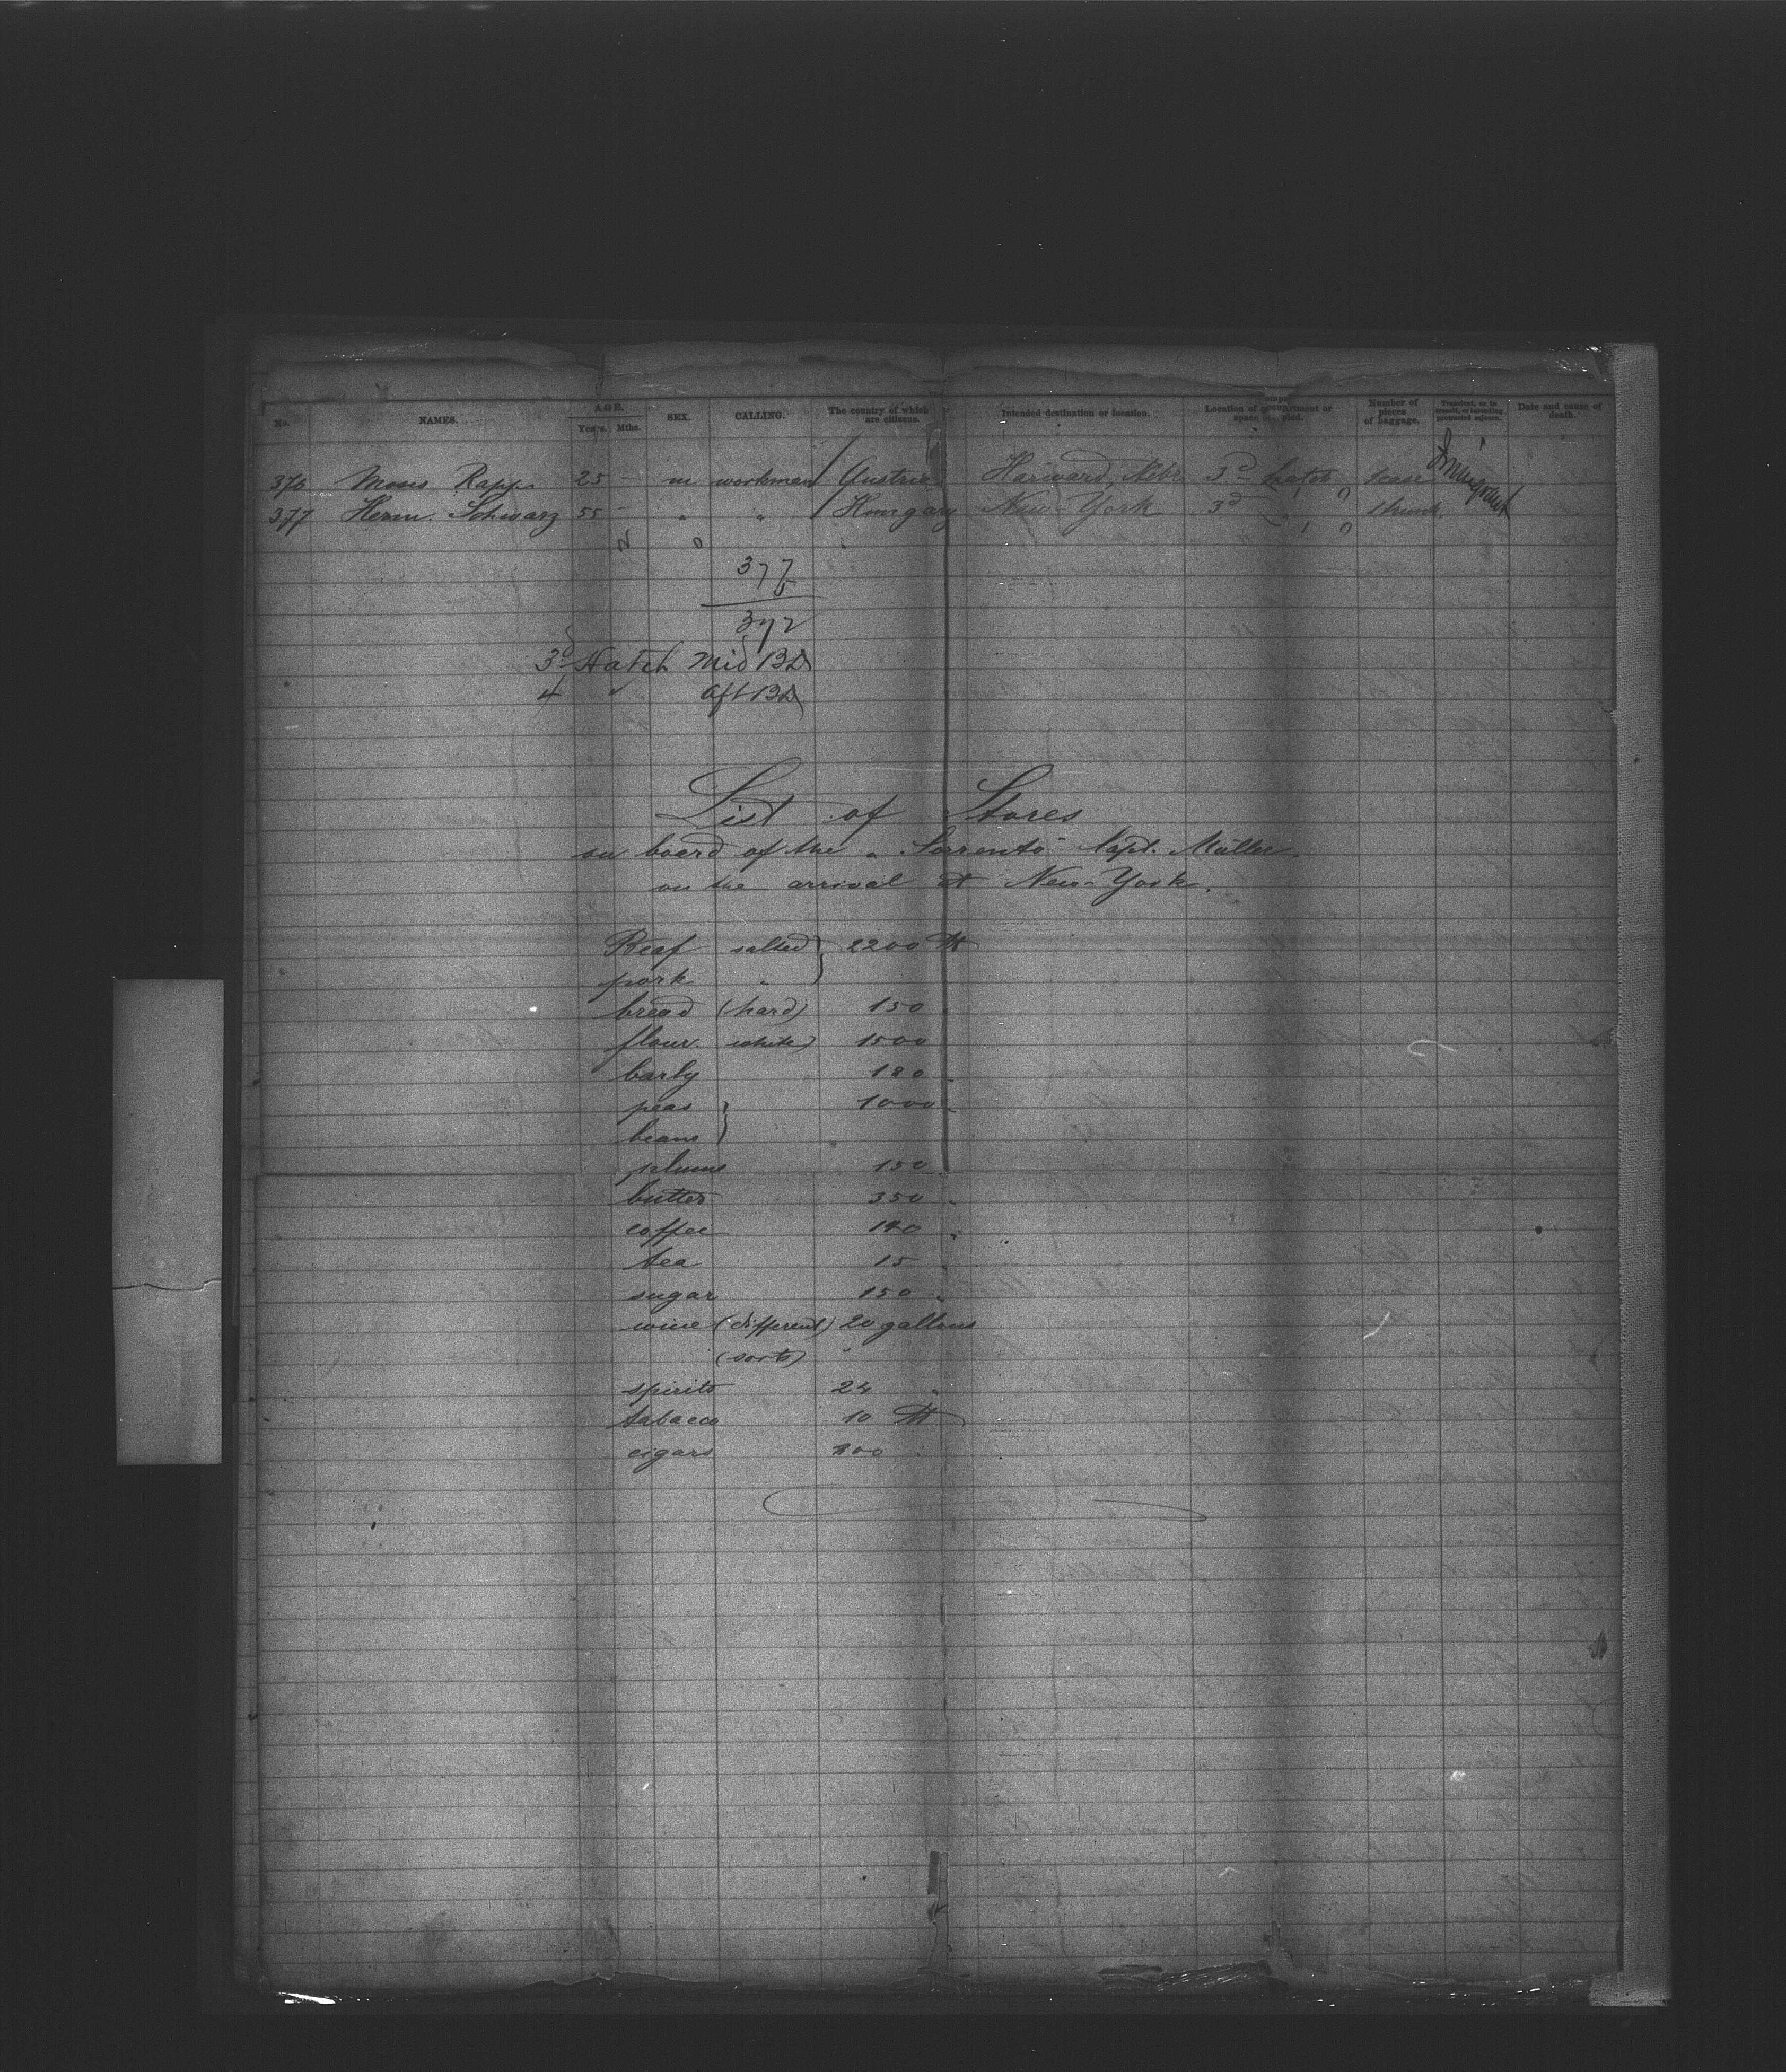 No. NAMES. AGE. Years. Mths. SEX. CALLING. The country of which are citizens. Intended destination or location. Location of compartment or space occupied. Number of pieces of baggage. Date and cause of death.
376 Moses Rapp 25 - m workman Austria Harvard, Nebr 3d hatch 1 case Immigrant
377 Herm. Schwarz 55 - " " Hungary New-York 3d " 1 trunk
377
5
372
3d Hatch Mid 13D
4 " Aft 13D
List of Stores
on board of the "Sorrento" Capt. Müller
on the arrival at New-York.
Beaf salted } 2200 ℔
pork "
bread (hard) 150
flour. white) 1500
barly 180 "
peas } 1000 "
beans
plums 150 "
butter 350 "
coffee 140 "
tea 15 "
sugar 150 "
wine (different) 20 gallons
(sorts) "
spirits 24 "
tabacco 10 ℔
cigars 200